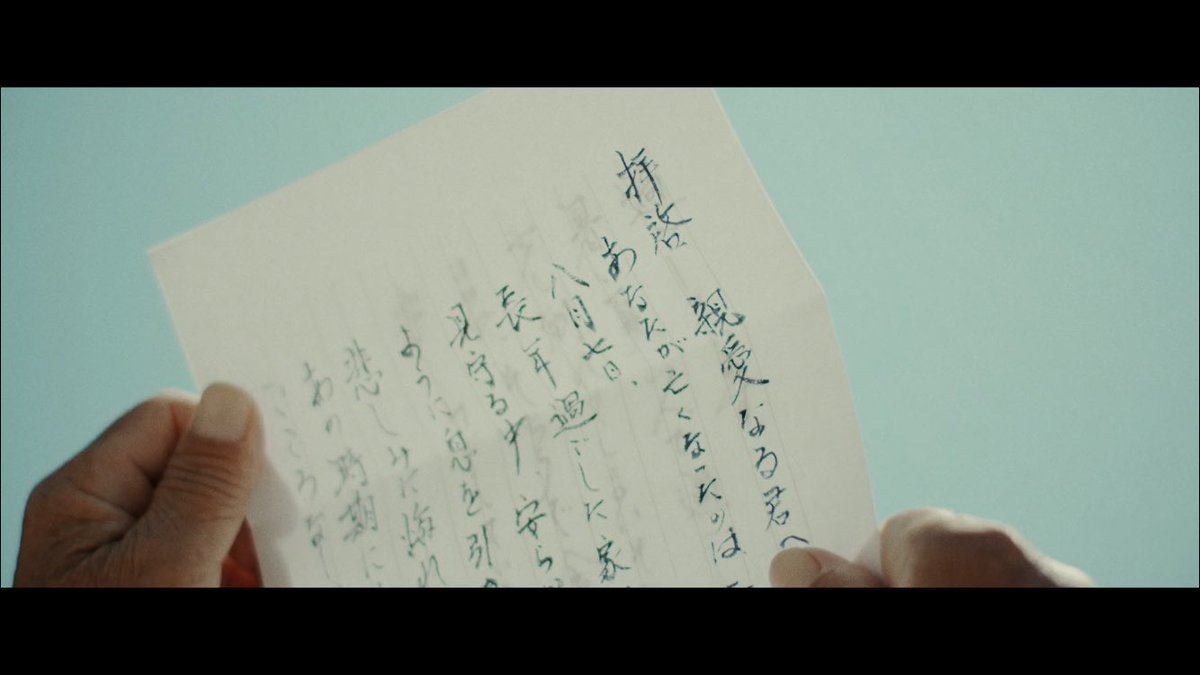 拝啓 親愛なる君へ
あなたが亡くなったのは
八月七日、
長年過ごした家
見守る中、安ら
ように息を引
悲しみに
あの時期に
こころ